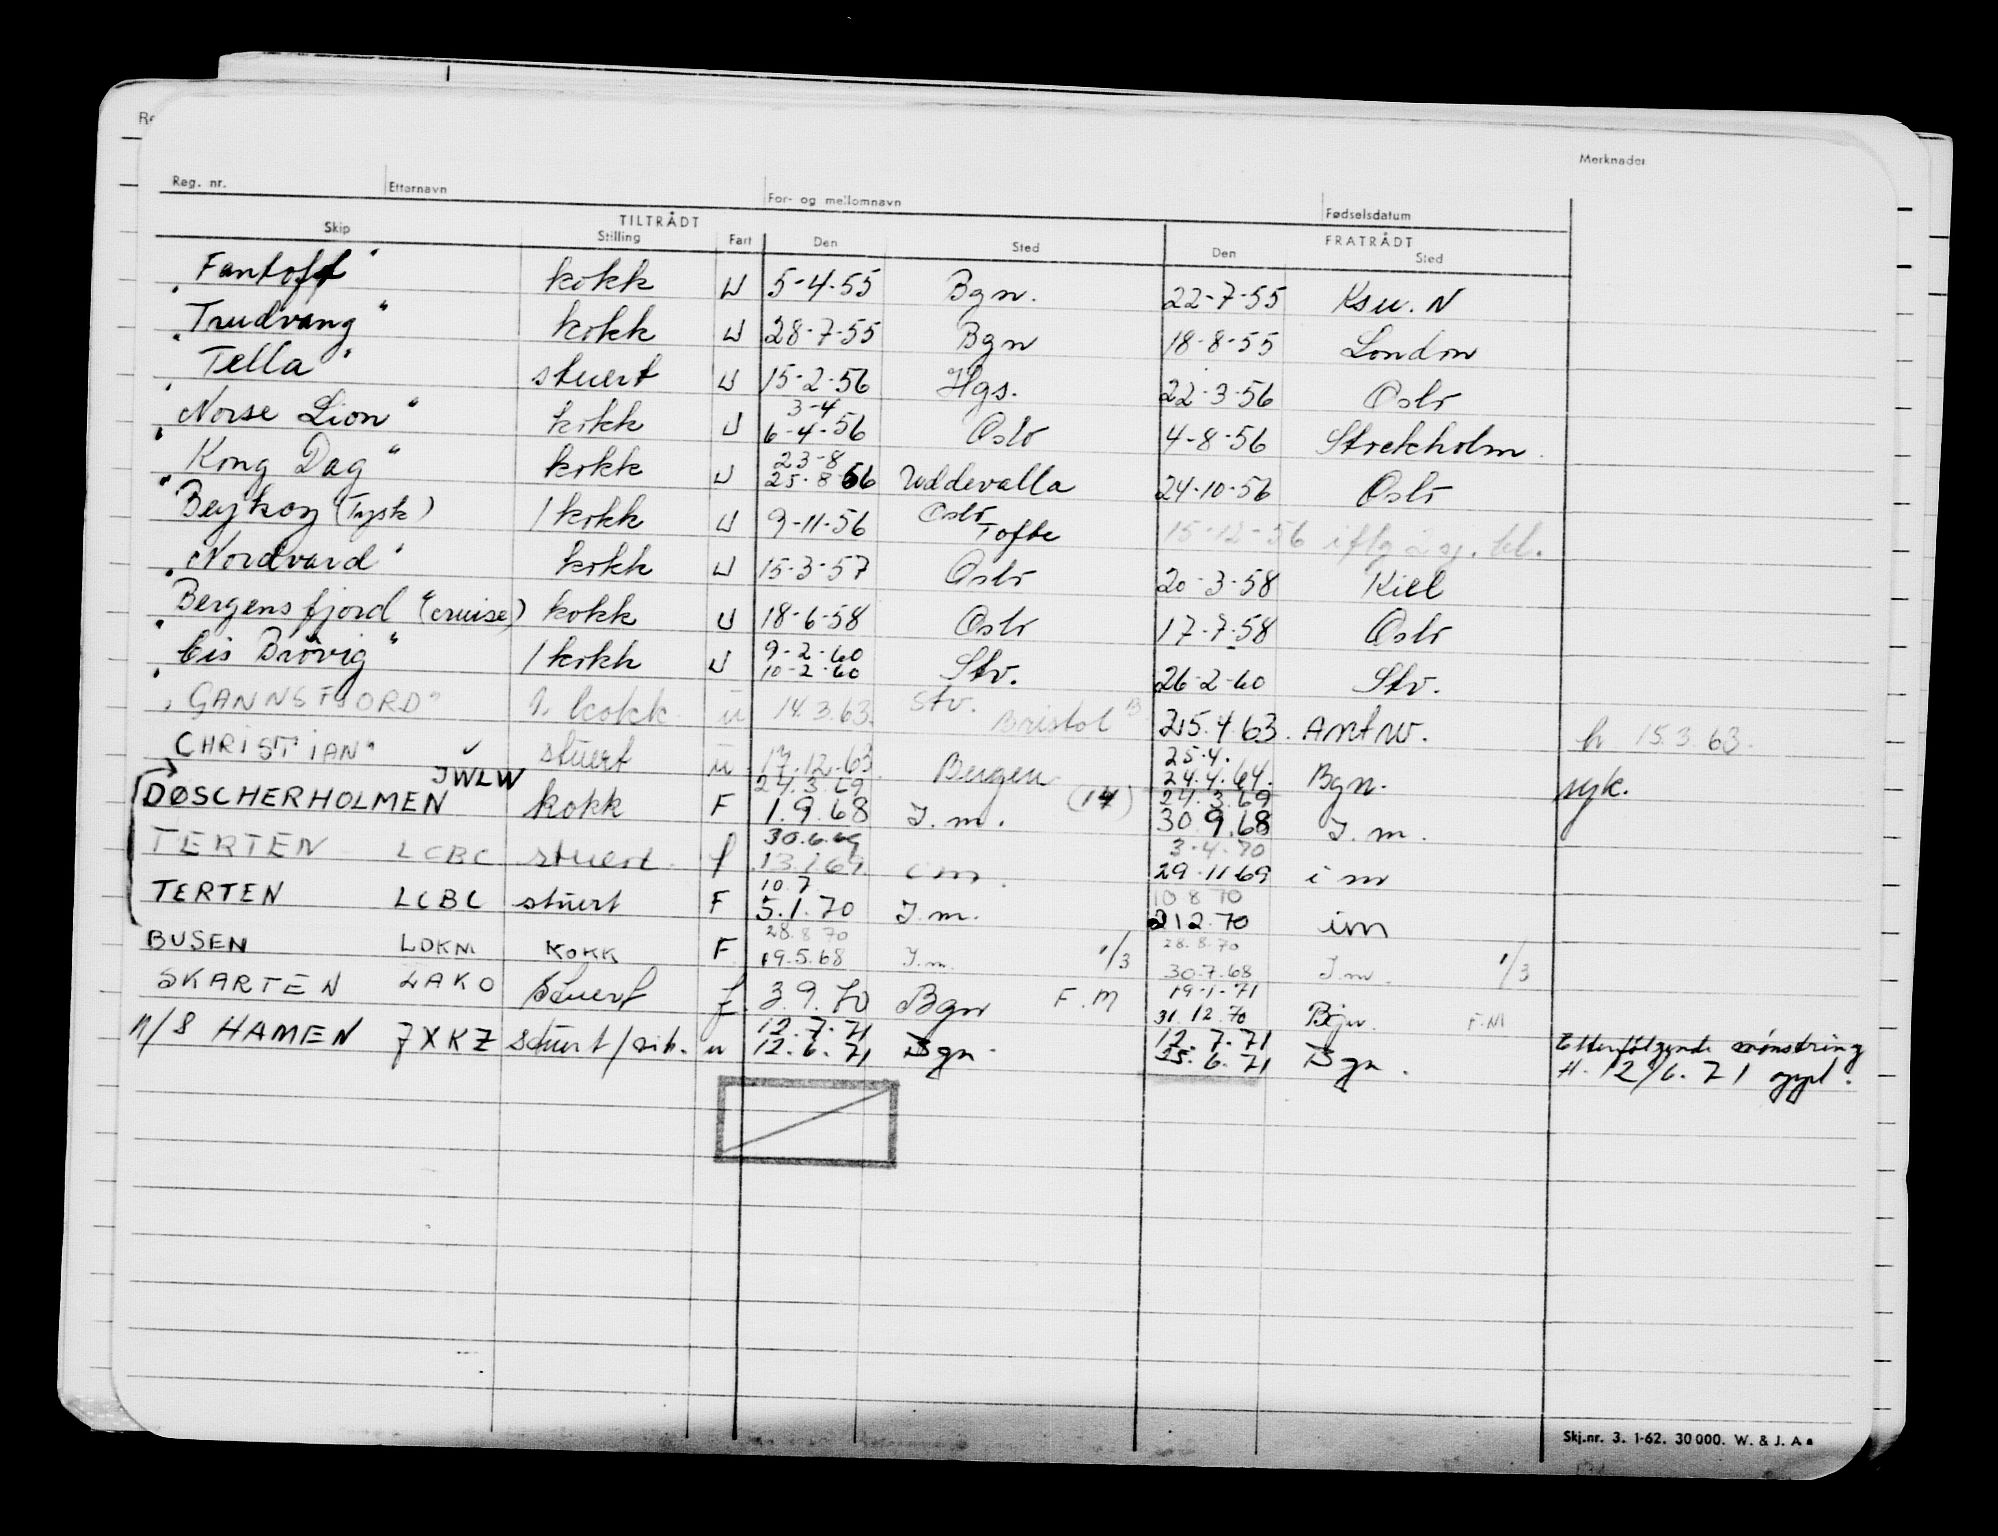 Merknader
Reg. nr. Etternavn For- og mellomnavn Fødselsdatum
TILTRÅDT FRATRÅDT
Skip Stilling Fart Den Sted Den Sted
"Fantoft" kokk U 5-4-55 Bgn. 22-7-55 Ksu. N
"Trudvang" kokk U 28-7-55 Bgn 18-8-55 London
"Tella" stuert U 15-2-56 Hgs. 22-3-56 Oslo
3-4
"Norse Lion" kokk U 6-4-56 Oslo 4-8-56 Stockholm.
23-8
"Kong Dag" kokk U 25-8-56 Uddevalla 24-10-56 Oslo
(Tysk) 1 kokk U 9-11-56 Oslo Tofte 15-12-56 iflg
"Nordvard" kokk U 15-3-57 Oslo 20-3-58 Kiel
"Bergensfjord" (cruise) kokk U 18-6-58 Oslo 17-7-58 Oslo
9-2-60
"Cis Brøvig" 1 kokk U 10-2-60 Stv. 26-2-60 Stv.
"GANNSFJORD" kokk u 14.3.63. Stv. Bristol 25.4.63. Antw. h 15.3.63.
25.4.
"CHRISTIAN" stuert u 17.12.63. Bergen 24.4.64. Bgn. syk.
JWLW 24.3.69 (14) 24.3.69
DØSCHERHOLMEN kokk F 1.9.68 I.m. 30.9.68 I.m.
30.6.69 3-4-70
TERTEN LCBC stuert f 13.1.69 i m. 29.11.69 i m
10.7. 10 8 70
TERTEN LCBC stuert F 5.1.70 I.m. 212.70 im
28.8.70 28.8.70
BUSEN LDKM KOKK F 19.5.68 I.m. 1/3 30.7.68 I.m. 1/3
19-1-71
SKARTEN LAKO Stuert f. 3.9.70 Bgn F.M 31.12.70 Bgn. F.M
12.7.71 12.7.71 Etterfølgende mønstring
N/S HAMEN JXKZ stuert / u 12.6.71 Bgn. 25.6.71 Bgn. 12/6.71 oppl.
Skj.nr. 3. 1-62. 30 000. W. & J. A